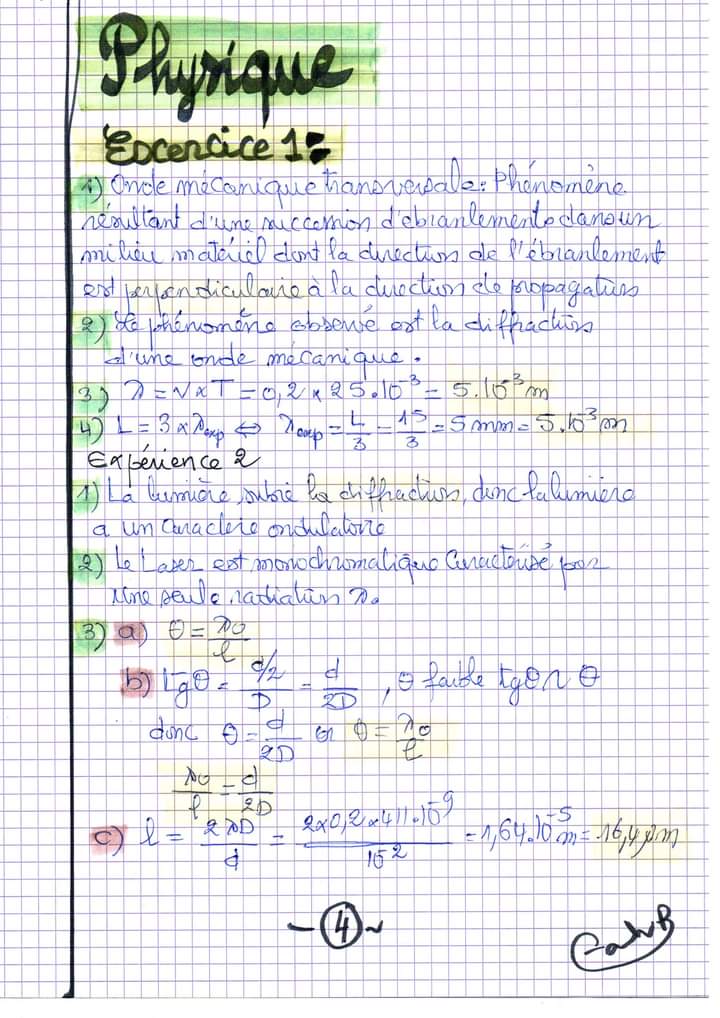 Physique
Excercice 1:
1) Onde mécanique transversale: Phénomène
résultant d'une succession d'ébranlements dans un
milieu matériel dont la direction de l'ébranlement
est perpendiculaire à la direction de propagation
2) Le phénomène observé est la diffraction
d'une onde mécanique.
3) λ = V × T = 0,2 × 25.10⁻³ = 5.10⁻³ m
4) L = 3 × λexp ⇔ λexp = L/3 = 15/3 = 5 mm = 5.10⁻³ m
Expérience 2
1) La lumière subie la diffraction, donc la lumière
a un caractère ondulatoire
2) Le Laser est monochromatique caractérisé par
une seule radiation λ.
3) a) θ = λ0/l
b) tgθ = (d/2)/D = d/2D , θ faible tgθ ~ θ
donc θ = d/2D or θ = λ0/l
λ0/l = d/2D
c) l = 2λD/d = 2×0,2×411.10⁻⁹/10⁻² = 1,64.10⁻⁵ m = 16,4 μm
- 4 ~